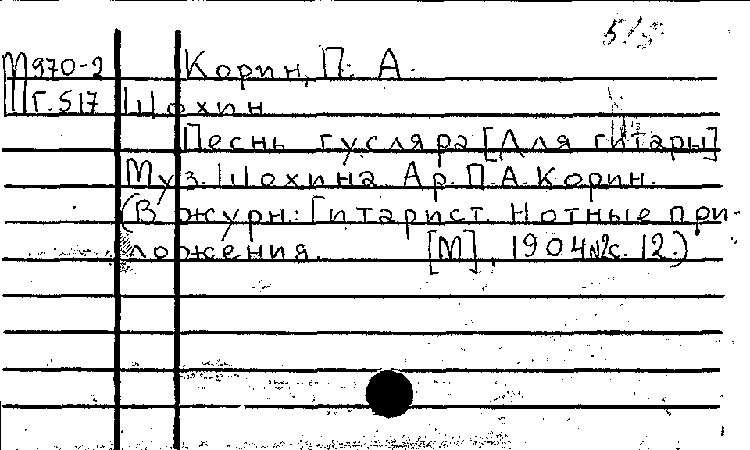 5/5
М970-2 Корин, П. А.
Г. 517 Шохин
Песнь гусляра [Для гитары]
Муз. Шохина Ар. П. А. Корин.
(В журн: Гитарист. Нотные при-
ложения. [М], 1904 №2с. 12.)